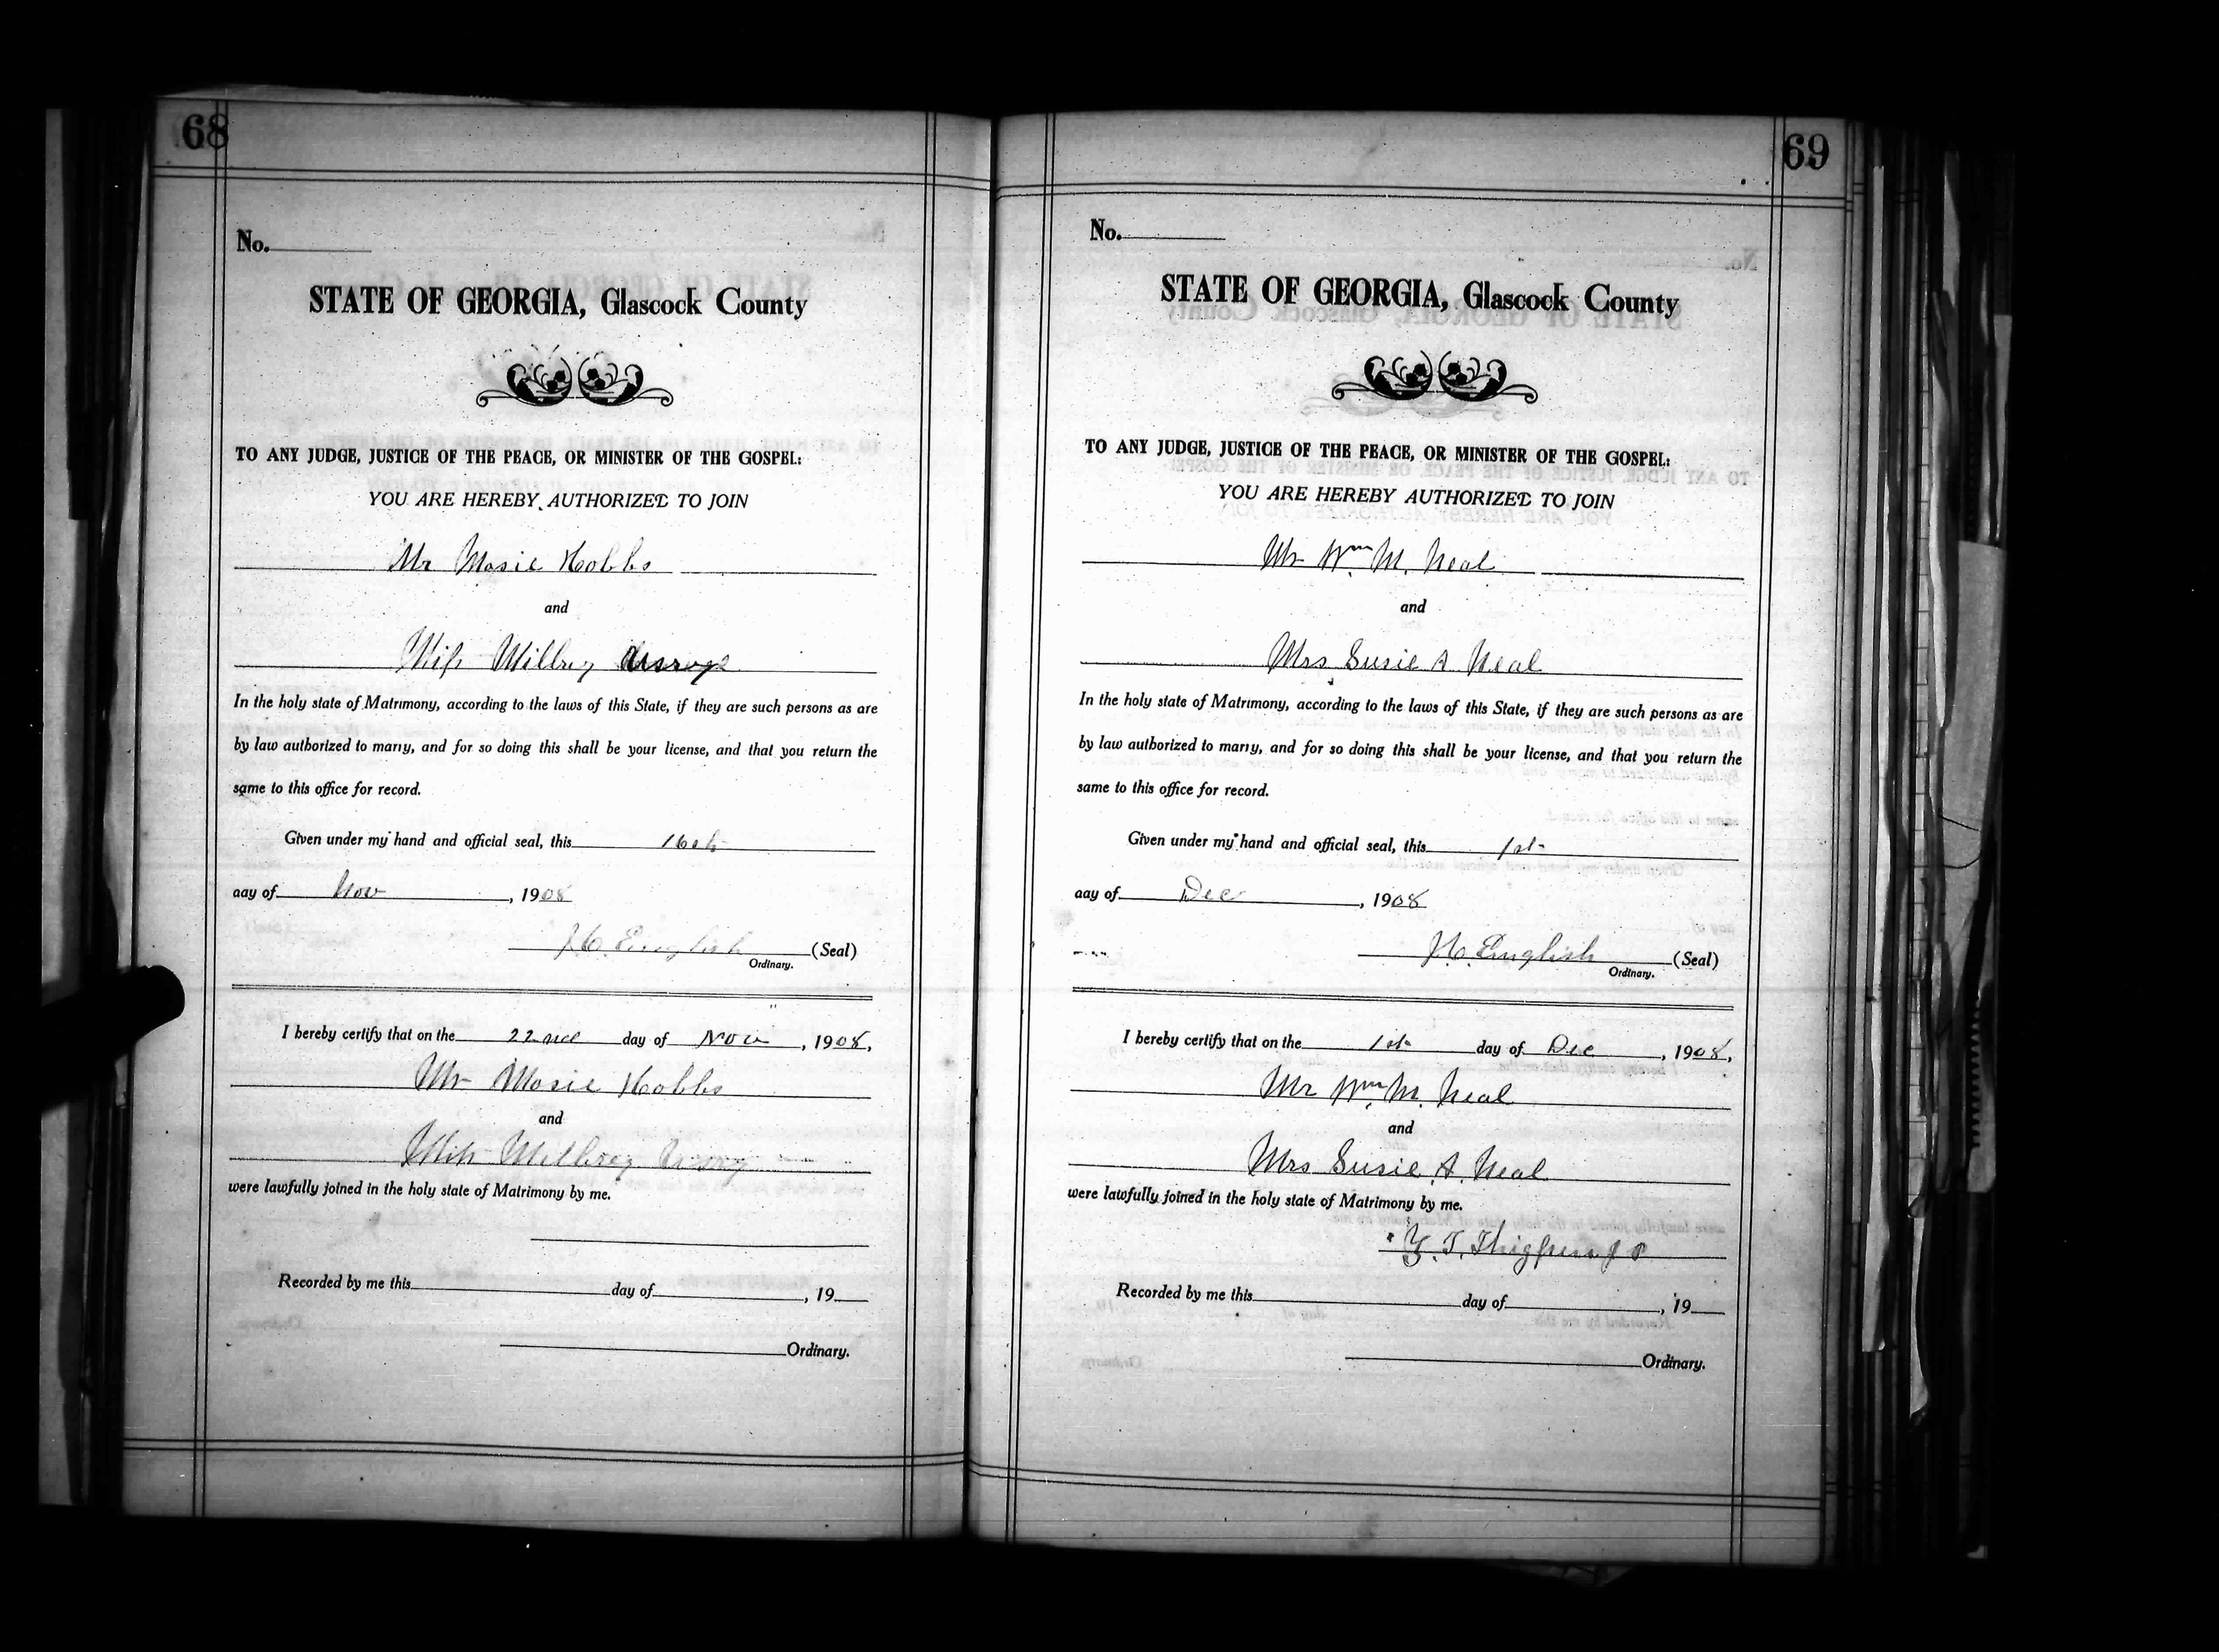 68
No.
STATE OF GEORGIA, Glascock County
TO ANY JUDGE, JUSTICE OF THE PEACE, OR MINISTER OF THE GOSPEL:
YOU ARE HEREBY AUTHORIZED TO JOIN
Mr Mosie Hobbs
and
Miss
In the holy state of Matrimony, according to the laws of this State, if they are such persons as are
by law authorized to marry, and for so doing this shall be your license, and that you return the
same to this office for record.
Given under my hand and official seal, this 16th
day of Nov, 1908
J. C. English (Seal)
Ordinary.
I hereby certify that on the 22nd day of Nov, 1908,
Mr Mosie Hobbs
and
Miss
were lawfully joined in the holy state of Matrimony by me.
Recorded by me this day of , 19
Ordinary.
69
No.
STATE OF GEORGIA, Glascock County
TO ANY JUDGE, JUSTICE OF THE PEACE, OR MINISTER OF THE GOSPEL:
YOU ARE HEREBY AUTHORIZED TO JOIN
Mr Wm. M. Neal
and
Mrs Susie A Neal
In the holy state of Matrimony, according to the laws of this State, if they are such persons as are
by law authorized to marry, and for so doing this shall be your license, and that you return the
same to this office for record.
Given under my hand and official seal, this 1st
day of Dec, 1908
J. C. English (Seal)
Ordinary.
I hereby certify that on the 1st day of Dec, 1908,
Mr Wm. M. Neal
and
Mrs Susie A. Neal
were lawfully joined in the holy state of Matrimony by me.
Y. T. Thigpen J P
Recorded by me this day of , 19
Ordinary.